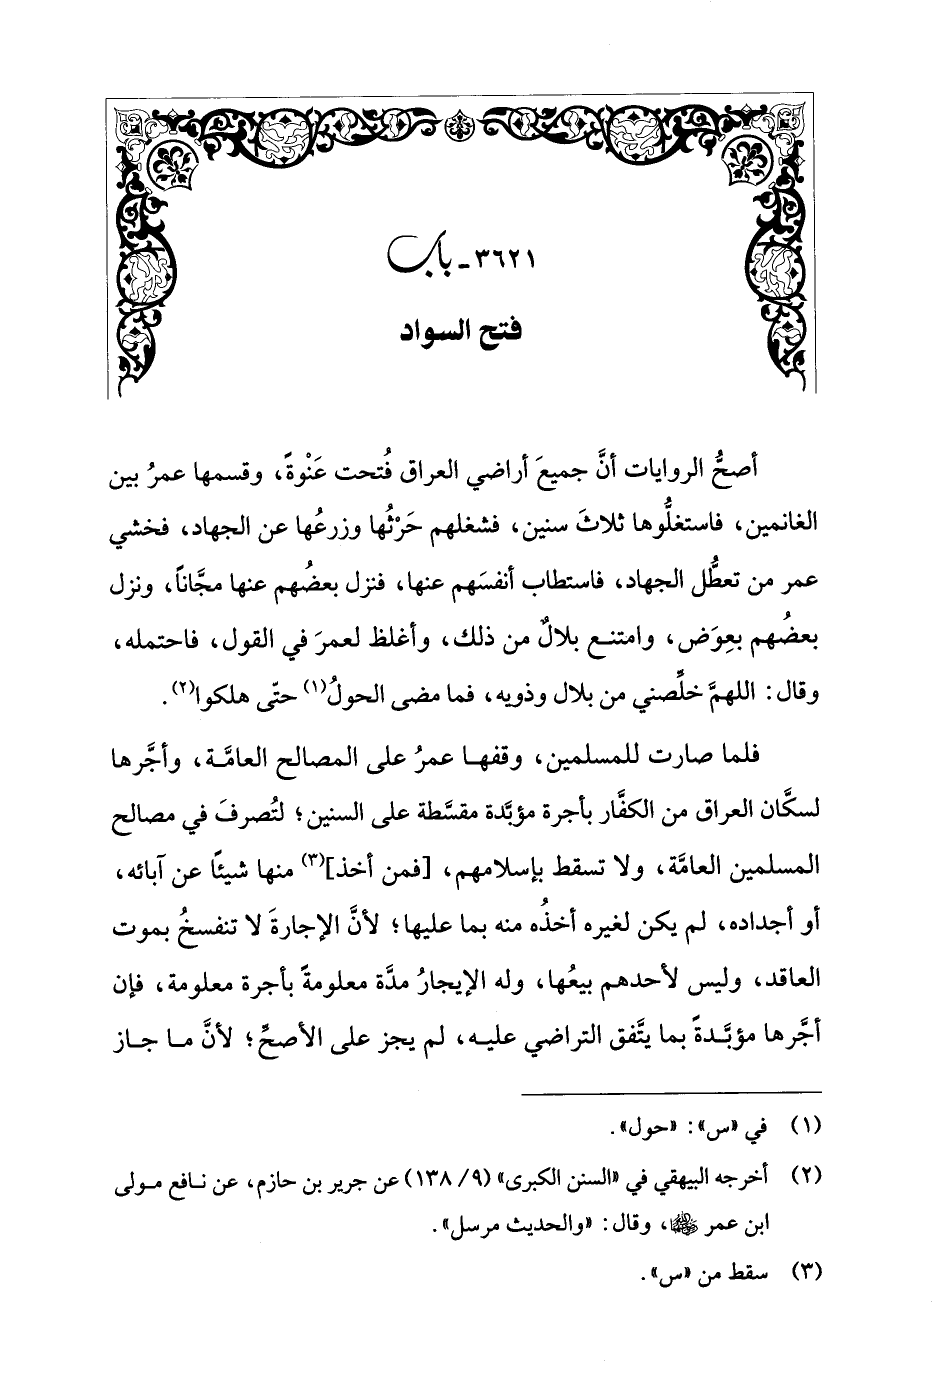 ٣٦٢١ - باب
فتح السواد
أصحُّ الروايات أنَّ جميعَ أراضي العراق فُتحت عَنْوةً، وقسمها عمرُ بين
الغانمين، فاستغلُّوها ثلاثَ سنين، فشغلهم حَرْثُها وزرعُها عن الجهاد، فخشي
عمر من تعطُّل الجهاد، فاستطاب أنفسَهم عنها، فنزل بعضُهم عنها مجَّاناً، ونزل
بعضُهم بعِوَض، وامتنع بلالٌ من ذلك، وأغلظ لعمرَ في القول، فاحتمله،
وقال: اللهمَّ خلِّصني من بلال وذويه، فما مضى الحولُ(١) حتّى هلكوا(٢).
فلما صارت للمسلمين، وقفها عمرُ على المصالح العامَّة، وأجَّرها
لسكَّان العراق من الكفَّار بأجرة مؤبَّدة مقسَّطة على السنين؛ لتُصرفَ في مصالح
المسلمين العامَّة، ولا تسقط بإسلامهم، [فمن أخذ](٣) منها شيئاً عن آبائه،
أو أجداده، لم يكن لغيره أخذُه منه بما عليها؛ لأنَّ الإجارةَ لا تنفسخُ بموت
العاقد، وليس لأحدهم بيعُها، وله الإيجارُ مدَّة معلومةً بأجرة معلومة، فإن
أجَّرها مؤبَّدةً بما يتَّفق التراضي عليه، لم يجز على الأصحِّ؛ لأنَّ ما جاز
(١) في «س»: «حول».
(٢) أخرجه البيهقي في «السنن الكبرى» (٩/ ١٣٨) عن جرير بن حازم، عن نافع مولى
ابن عمر ﷺ، وقال: «والحديث مرسل».
(٣) سقط من «س».